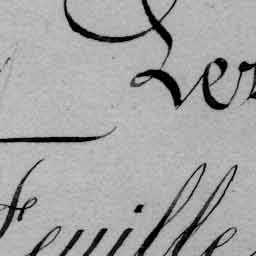 Per
Feuille